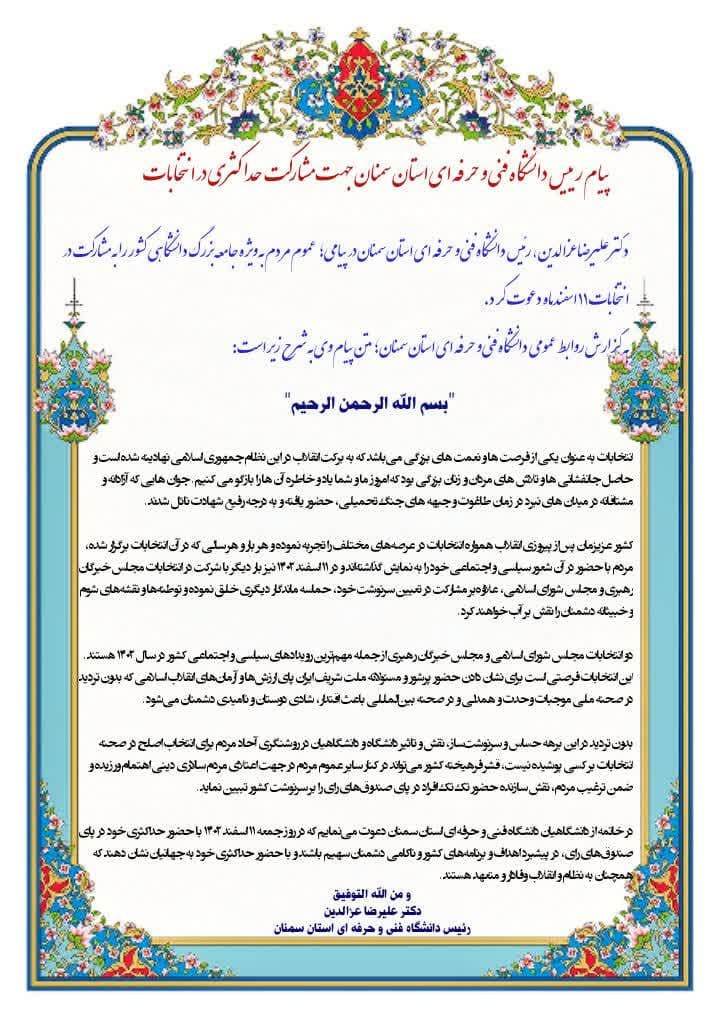 پیام رییس دانشگاه فنی و حرفه ای استان سمنان جهت مشارکت حداکثری در انتخابات
دکتر علیرضا عزالدین، رئیس دانشگاه فنی و حرفه ای استان سمنان در پیامی؛ عموم مردم به ویژه جامعه بزرگ دانشگاهی کشور را به مشارکت در
انتخابات ۱۱ اسفندماه دعوت کرد.
به گزارش روابط عمومی دانشگاه فنی و حرفه ای استان سمنان؛ متن پیام وی به شرح زیر است:
"بسم الله الرحمن الرحیم"
انتخابات به عنوان یکی از فرصت ها و نعمت های بزرگی می باشد که به برکت انقلاب در این نظام جمهوری اسلامی نهادینه شده است و
حاصل جانفشانی ها و تلاش های مردان و زنان بزرگی بود که امروز ما و شما یاد و خاطره آن ها را بازگو می کنیم. جوان هایی که آزادانه و
مشتاقانه در میدان های نبرد در زمان طاغوت و جبهه های جنگ تحمیلی، حضور یافته و به درجه رفیع شهادت نائل شدند.
کشور عزیزمان پس از پیروزی انقلاب همواره انتخابات در عرصه‌های مختلف را تجربه نموده و هر بار و هر سالی که در آن انتخابات برگزار شده،
مردم با حضور در آن شعور سیاسی و اجتماعی خود را به نمایش گذاشته‌اند و در ۱۱ اسفند ۱۴۰۲ نیز بار دیگر با شرکت در انتخابات مجلس خبرگان
رهبری و مجلس شورای اسلامی، علاوه بر مشارکت در تعیین سرنوشت خود، حماسه ماندگار دیگری خلق نموده و توطئه‌ها و نقشه‌های شوم
و خبیثانه دشمنان را نقش بر آب خواهند کرد.
دو انتخابات مجلس شورای اسلامی و مجلس خبرگان رهبری از جمله مهم‌ترین رویدادهای سیاسی و اجتماعی کشور در سال ۱۴۰۲ هستند.
این انتخابات فرصتی است برای نشان دادن حضور پرشور و مسئولانه ملت شریف ایران پای ارزش‌ها و آرمان‌های انقلاب اسلامی که بدون تردید
در صحنه ملی موجبات وحدت و همدلی و در صحنه بین‌المللی باعث اقتدار، شادی دوستان و ناامیدی دشمنان می‌شود.
بدون تردید در این برهه حساس و سرنوشت‌ساز، نقش و تاثیر دانشگاه و دانشگاهیان در روشنگری آحاد مردم برای انتخاب اصلح در صحنه
انتخابات بر کسی پوشیده نیست، قشر فرهیخته کشور می‌تواند در کنار سایر عموم مردم در جهت اعتلای مردم سالاری دینی اهتمام ورزیده و
ضمن ترغیب مردم، نقش سازنده حضور تک تک افراد در پای صندوق‌های رای را بر سرنوشت کشور تبیین نماید.
در خاتمه از دانشگاهیان دانشگاه فنی و حرفه ای استان سمنان دعوت می‌نمایم که در روز جمعه ۱۱ اسفند ۱۴۰۲ با حضور حداکثری خود در پای
صندوق‌های رای، در پیشبرد اهداف و برنامه‌های کشور و ناکامی دشمنان سهیم باشند و با حضور حداکثری خود به جهانیان نشان دهند که
همچنان به نظام و انقلاب وفادار و متعهد هستند.
و من الله التوفیق
دکتر علیرضا عزالدین
رئیس دانشگاه فنی و حرفه ای استان سمنان